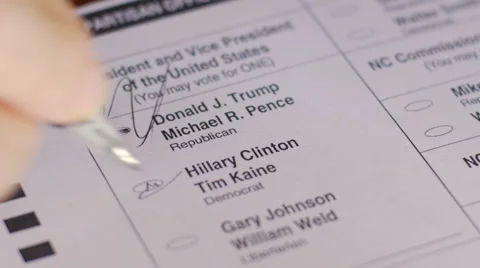 PARTISAN OFFI
sident and Vice President
of the United States
(You may vote for ONE)
Donald J. Trump
Michael R. Pence
Republican
Hillary Clinton
Tim Kaine
Democrat
Gary Johnson
William Weld
Libertarian
Walter
NC Commission
(You may
Mike
Re
NC